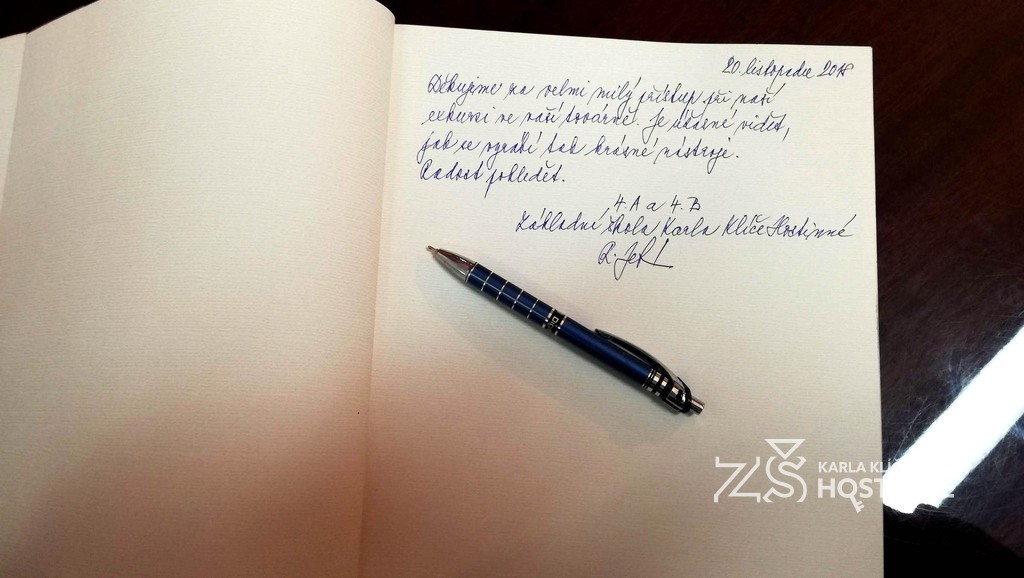 20. listopadu 2018
Děkujeme za velmi milý přístup při naší
exkurzi ve vaší továrně. Je úžasné vidět,
jak se vyrábí tak krásné nástroje.
Radost pohledět.
4. A a 4. B
Základní škola Karla Klíče Hostinné
ZŠ
KARLA KLÍ
HOST